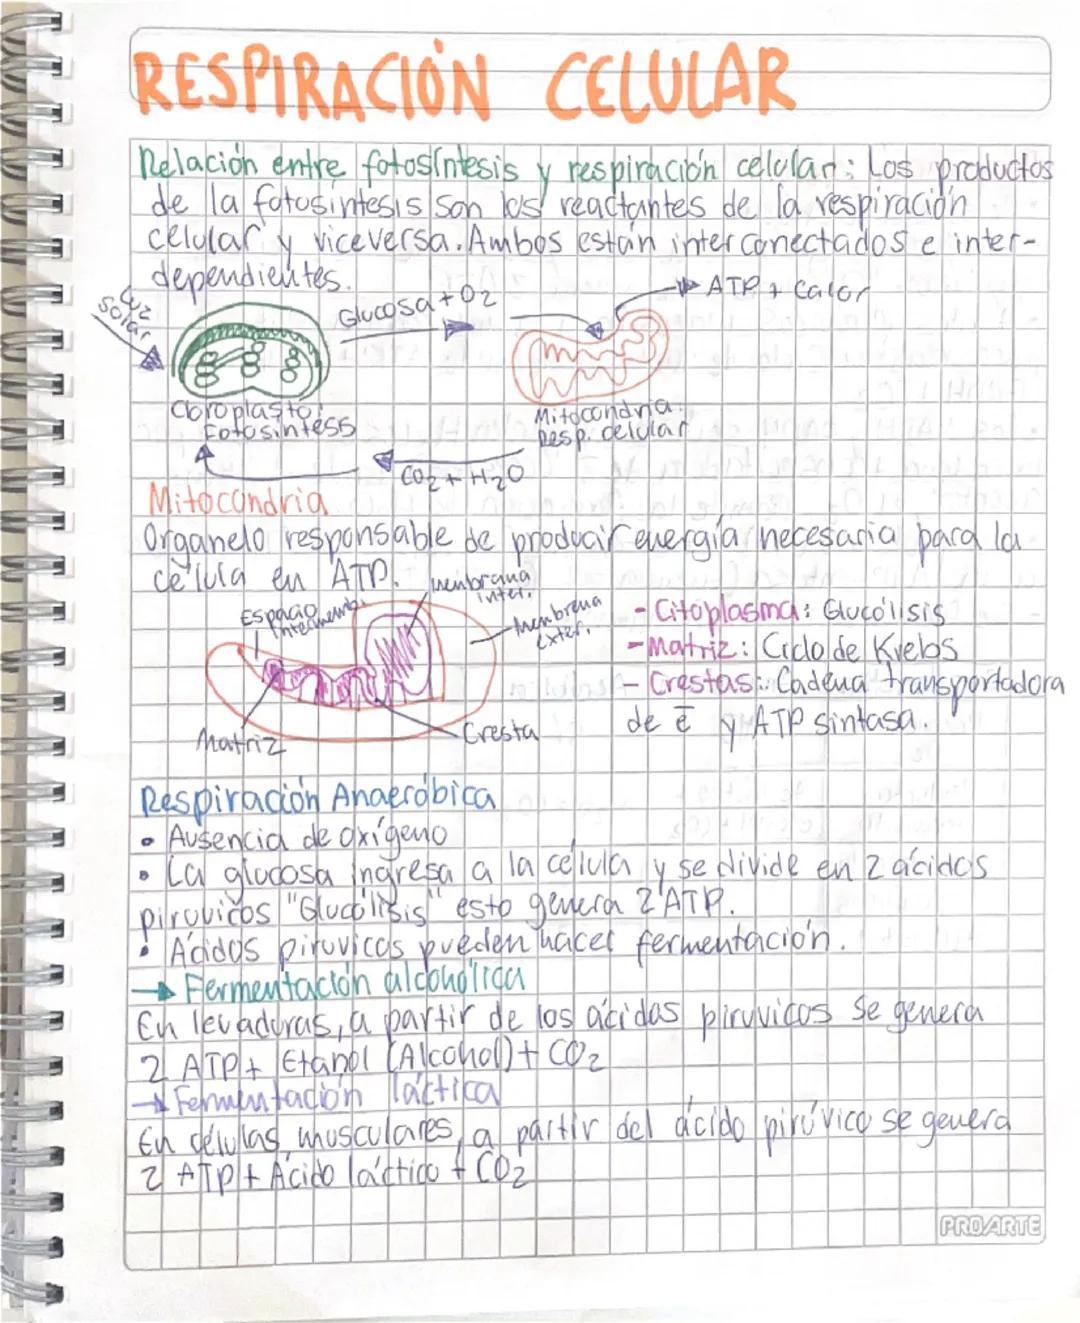 RESPIRACIÓN CELULAR
Relación entre fotosíntesis y respiración celular: Los productos
de la fotosíntesis son los reactantes de la respiración
celular y viceversa. Ambos están interconectados e inter-
dependientes.
Luz
solar
Glucosa + O2
ATP + Calor
Cloroplasto:
Fotosíntess
Mitocondria:
Resp. celular
CO2 + H2O
Mitocondria
Organelo responsable de producir energía necesaria para la
célula en ATP.
Espacio
intermemb.
membrana
inter.
Membrana
exter.
Matriz
Cresta
- Citoplasma: Glucólisis
- Matriz: Ciclo de Krebs
- Crestas: Cadena transportadora
de ē y ATP sintasa.
Respiración Anaeróbica
• Ausencia de oxígeno
• La glucosa ingresa a la célula y se divide en 2 ácidos
piruvicos "Glucólisis" esto genera 2 ATP.
• Ácidos piruvicos pueden hacer fermentación.
→ Fermentación alcohólica
En levaduras, a partir de los ácidos piruvicos se genera
2 ATP + Etanol (Alcohol) + CO2
→ Fermentación láctica
En células musculares, a partir del ácido pirúvico se genera
2 ATP + Ácido láctico + CO2
PROARTE